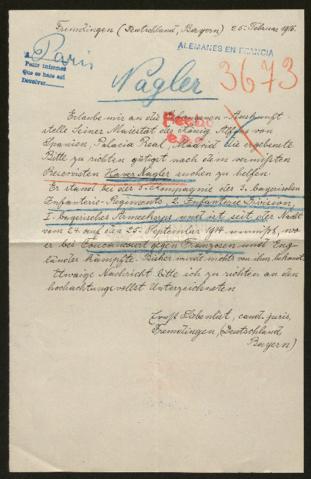 Fremdingen (Deutschland, Bayern) 26. Februar 1916.
Paris
ALEMANES EN FRANCIA
Pedir informes
Que se hace así
Devolver
Nagler
3673
Erlaube mir an die Auskunft-
stelle Seiner Majestät des König Alfons von
Spanien, Palacio Real, Madrid die ergebenste
Bitte zu richten gütigst nach dem vermißten
Reservisten Xaver Nagler suchen zu helfen.
Er stand bei der 5. Compagnie des 3. bayerischen
Infanterie-Regiments, 2. Infanterie Division,
I. bayerisches Armeekorps und ist seit der Nacht
vom 24. auf den 25. September 1914 vermißt, wo
er bei Foucaucourt gegen Franzosen und Eng-
länder kämpfte. Bisher ist nichts von ihm bekannt.
Etwaige Nachricht bitte ich zu richten an den
hochachtungsvollst Unterzeichneten
Ernst, cand. juris,
Fremdingen (Deutschland
Bayern)